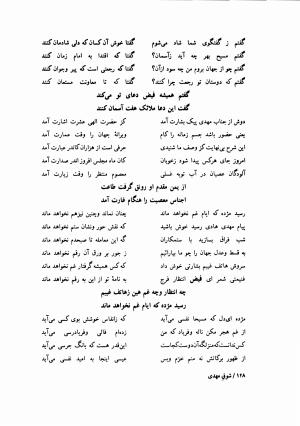 گفتم ز گفتگوی شما شاد می‌شوم گفتا خوش آن کسان که دلی شادمان کنند
گفتم مسیح بهر چه آید زآسمان؟ گفتا که اقتدا به امام زمان کنند
گفتم چو از جهان بروم من چه سود ازآن؟ گفتا که رجعتی است که پیر وجوان کنند
گفتم که دوستان تو رجعت چرا کنند؟ گفتا که تا معاونت مستعان کنند
گفتم همیشه فیض دعای تو می‌کند
گفت این دعا ملائک هفت آسمان کنند
دوش از جناب مهدی پیک بشارت آمد کز حضرت الهی عشرت اشارت آمد
یعنی حضور باشد جسم زمانه را کام ویرانهٔ جهان را وقت عمارت آمد
این شرح بی‌نهایت کز وصف ما شنیدی حرفی است از هزاران کاندر عبارت آمد
امروز جای هرکس پیدا شود زخوبان کان ماه مجلس افروز اندر صدارت آمد
آلودگان عصیان در آب توبه غسلی معصوم منتظر را وقت زیارت آمد
از یمن مقدم او رونق گرفت طاعت
اجناس معصیت را هنگام غارت آمد
رسید مژده که ایام غم نخواهد ماند چنان نماند وچنین نیزهم نخواهد ماند
پیام مهدی هادی رسید خوش باشید که نقش جور ونشان ستم نخواهد ماند
شب فراق بسازید با ستمکاران گه این معامله تا صبحدم نخواهد ماند
به قسط وعدل جهان را چو ما بیارائیم ز جور بر ورق آن رقم نخواهد ماند
سروش هاتف غیبم بشارتی خوش داد که کس همیشه گرفتار غم نخواهد ماند
غنیمتی شمر ای فیض انتظار فرج به نامهٔ تو از این به رقم نخواهد ماند
چه انتظار وچه غم هین زهاتف غیبم
رسید مژده که ایام غم نخواهد ماند
مژده ای‌دل که مسیحا نفسی می‌آید که زانفاس خوشش بوی کسی می‌آید
از غم هجر مکن ناله وفریاد که من زده‌ام فالی وفریادرسی می‌آید
کس ندانست که منزلگه آن دوست کجاست این‌قدر هست که بانگ جرسی می‌آید
از ظهور برکاتش نه منم خرم وبس عیسی اینجا به امید نفسی می‌آید
۱۲۸ / شوق مهدی